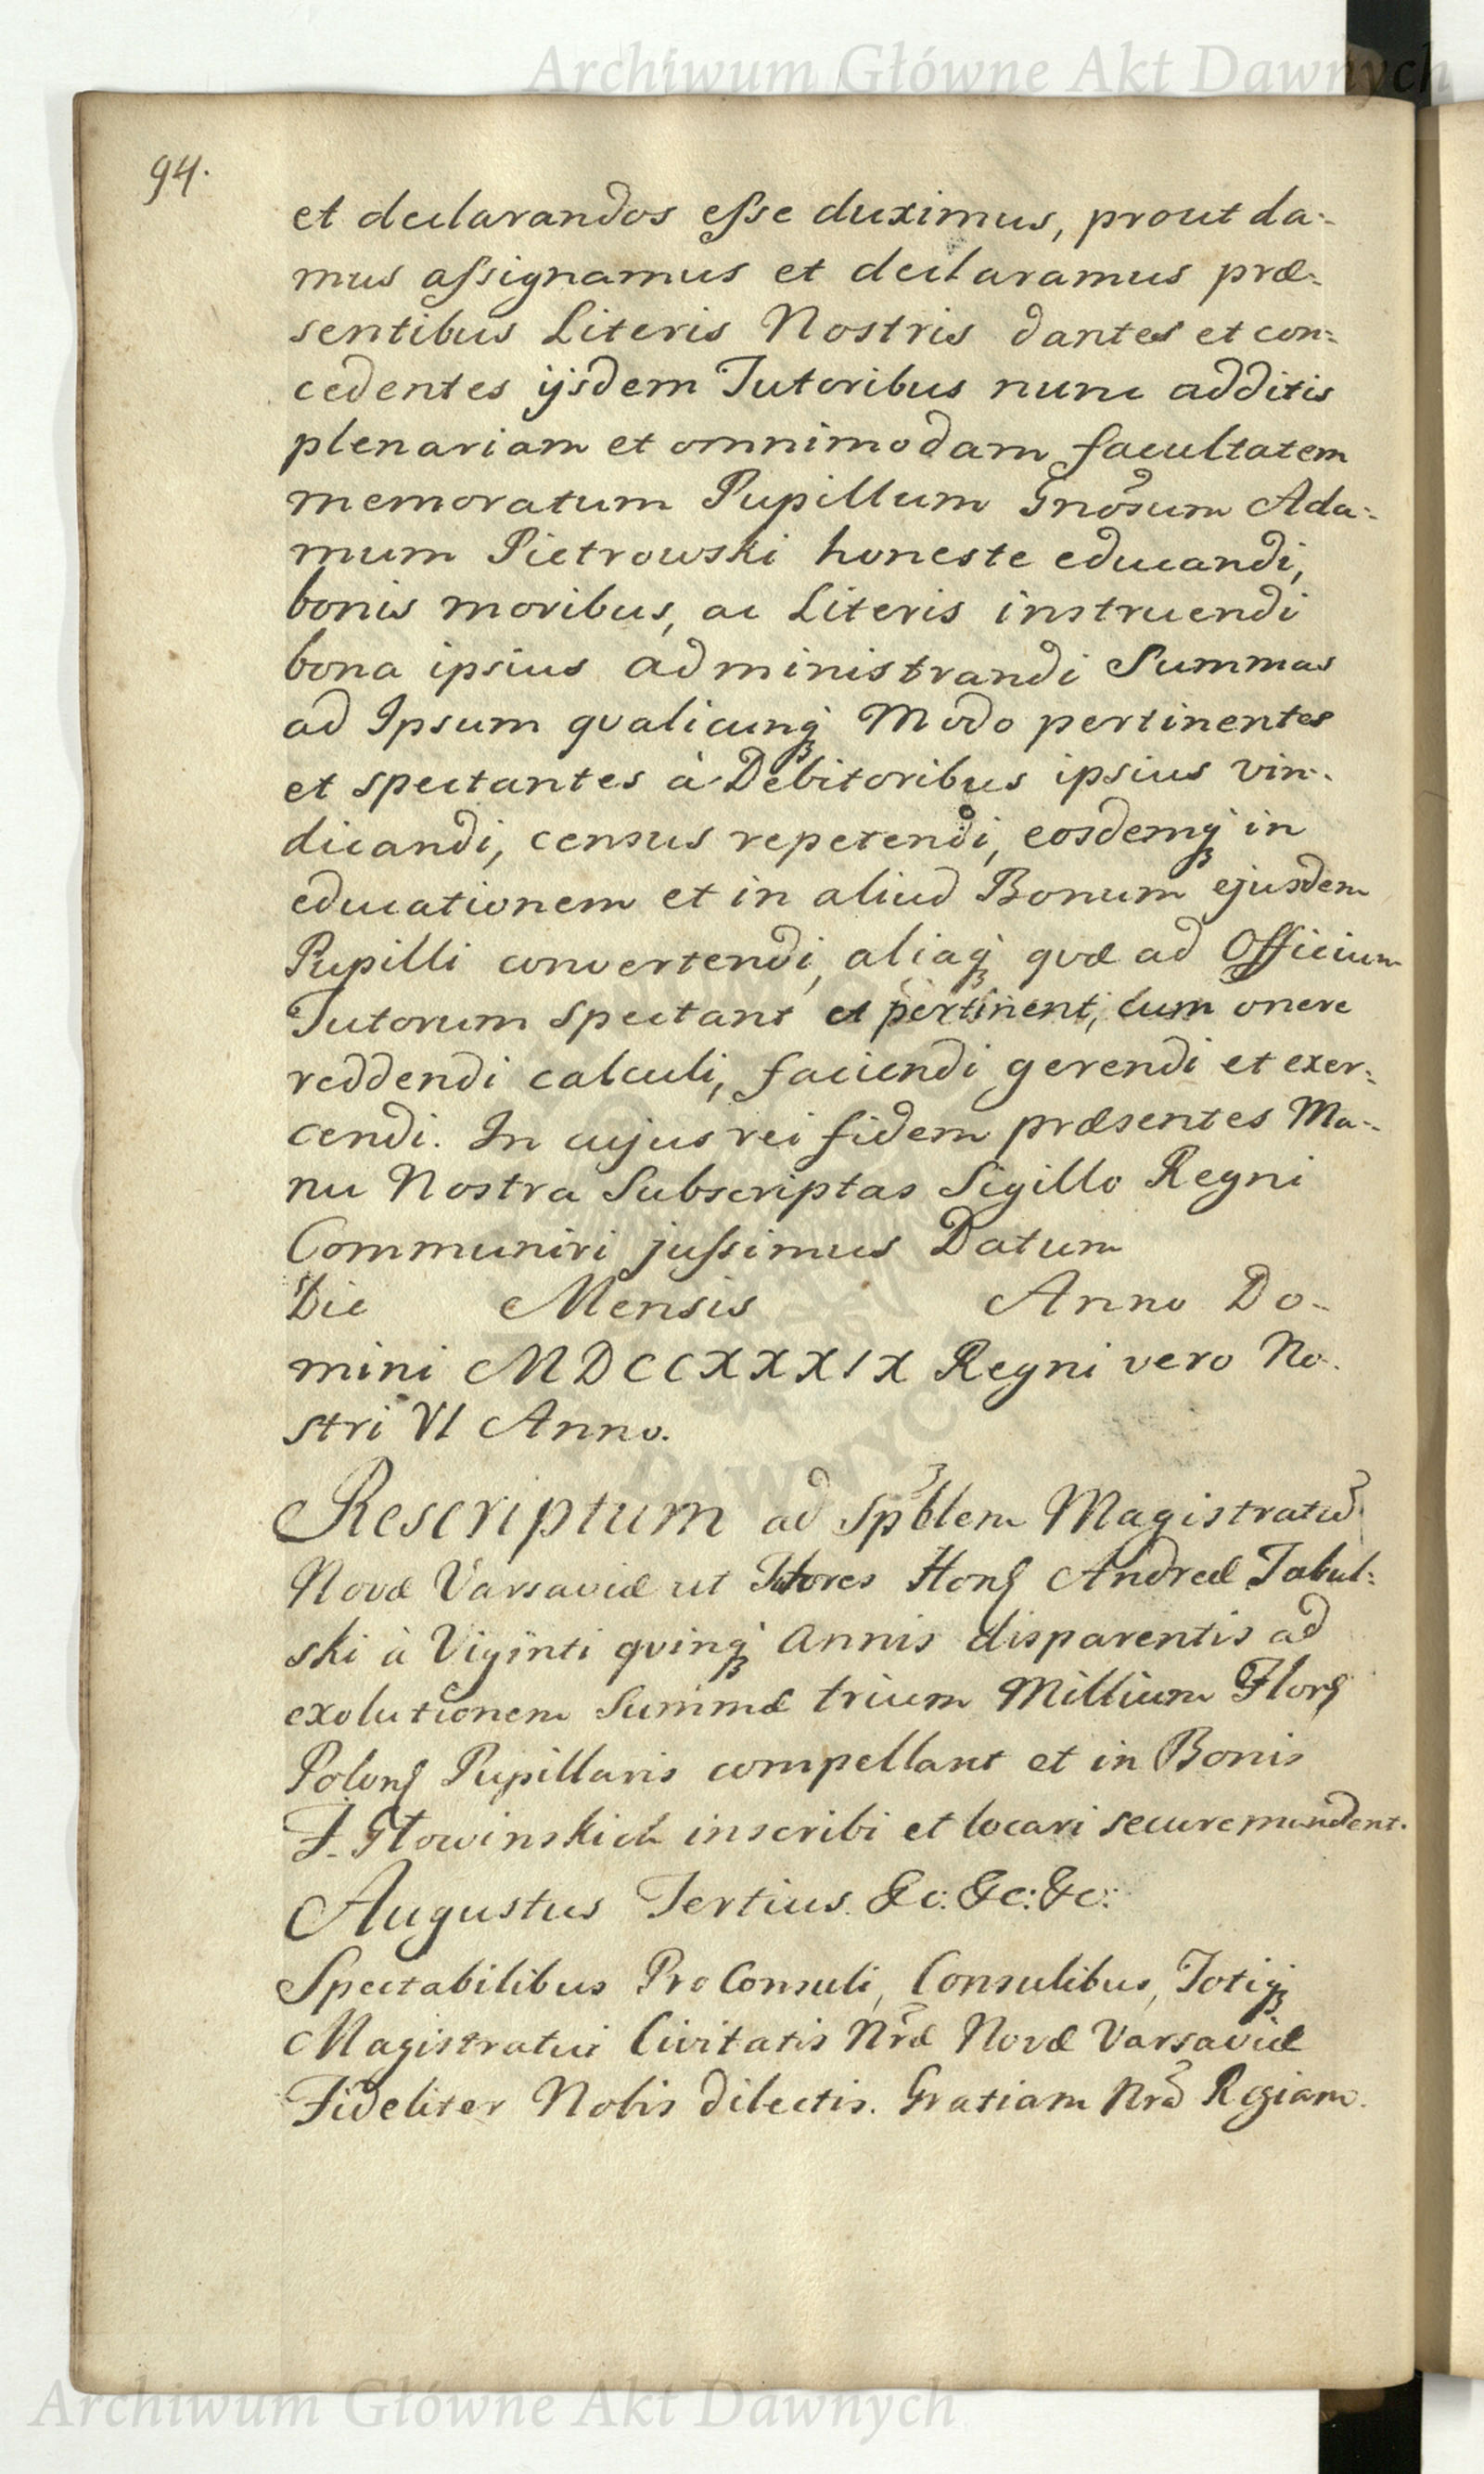 Archiwum Główne Akt Dawnych
94.
et declarandos eſse duximus, prout da:
mus aſsignamus et declaramus præ:
sentibus Literis Nostris dantes et con:
cedentes ijsdem Tutoribus nunc additis
plenariam et omnimodam facultatem
memoratum Pupillum Gnõsum Ada:
mum Pietrowski honeste educandi,
bonis moribus, ac Literis instruendi
bona ipsius administrandi Summas
ad Ipsum qvalicunq́ Modo pertinentes
et spectantes à Debitoribus ipsius vin:
dicandi, census repetendi, eosdemq́ in
educationem et in aliud Bonum ejusdem
Pupilli convertendi, aliaq́ qvæ ad Officium
Tutorum spectant et pertinent, cum onere
reddendi calculi, faciendi gerendi et exer:
cendi. In cujus rei fidem præsentes Ma:
nu Nostra Subscriptas Sigillo Regni
Communiri juſsimus Datum
Die Mensis Anno Do:
mini MDCCXXXIX Regni vero No:
stri VI Anno.
Rescriptum ad Spblem Magistratũ
Novæ Varsaviæ ut Tutores Honȩ Andreæ Tabul:
ski à Viginti qvinq́ Annis disparentis ad
exolutionem Summæ trium Millium Florȩ
Polonȩ Pupillaris compellant et in Bonis
F. Głowinskich inscribi et locari secure mandent.
Augustus Tertius. &c: &c: &c:
Spectabilibus ProConsuli, Consulibus, Totiq́
Magistratui Civitatis Nr̃æ Novæ Varsaviæ
Fideliter Nobis dilectis. Gratiam Nrã Regiam.
Archiwum Główne Akt Dawnych